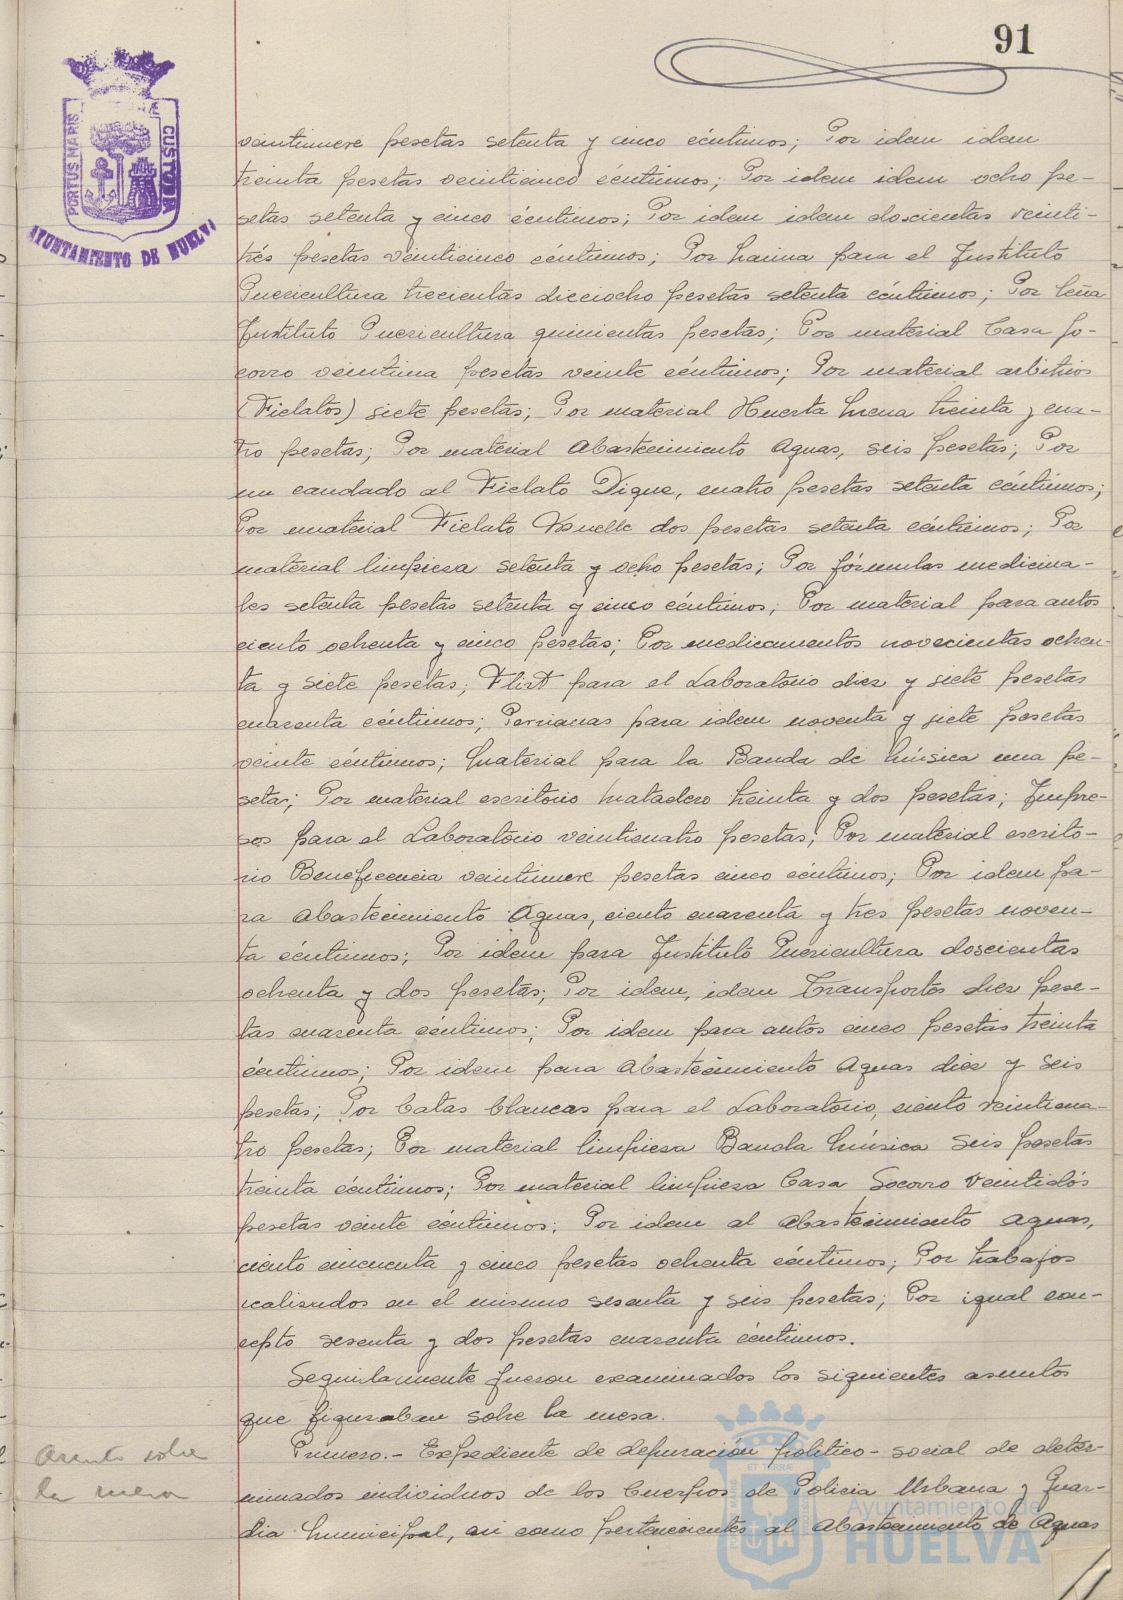 91
PORTUS MARIS
CUSTODIA
AYUNTAMIENTO DE HUELVA
veintinueve pesetas setenta y cinco céntimos; Por idem idem
treinta pesetas veinticinco céntimos; Por idem idem ocho pe-
setas setenta y cinco céntimos; Por idem idem doscientas veinti-
trés pesetas veinticinco céntimos; Por harina para el Instituto
Puericultura trecientas dieciocho pesetas setenta céntimos; Por leña
Instituto Puericultura quinientas pesetas; Por material Casa So-
corro veintiuna pesetas veinte céntimos; Por material arbitrios
(Fielatos) siete pesetas; Por material Huerta Mena treinta y cua-
tro pesetas; Por material Abastecimiento Aguas, seis pesetas; Por
un candado al Fielato Dique, cuatro pesetas setenta céntimos;
Por material Fielato Muelle dos pesetas setenta céntimos; Por
material limpieza setenta y ocho pesetas; Por fórmulas medicina-
les setenta pesetas setenta y cinco céntimos; Por material para autos
ciento ochenta y cinco pesetas; Por medicamentos novecientas ochen-
ta y siete pesetas; Flit para el Laboratorio diez y siete pesetas
cuarenta céntimos; Persianas para idem noventa y siete pesetas
veinte céntimos; Material para la Banda de Música una pe-
seta; Por material escritorio Matadero treinta y dos pesetas; Impre-
sos para el Laboratorio veinticuatro pesetas; Por material escrito-
rio Beneficencia veintinueve pesetas cinco céntimos; Por idem pa-
ra Abastecimiento Aguas, ciento cuarenta y tres pesetas noven-
ta céntimos; Por idem para Instituto Puericultura doscientas
ochenta y dos pesetas; Por idem, idem Transportes diez pese-
tas cuarenta céntimos; Por idem para autos cinco pesetas treinta
céntimos; Por idem para Abastecimiento Aguas diez y seis
pesetas; Por batas blancas para el Laboratorio, ciento veinticua-
tro pesetas; Por material limpieza Banda Música seis pesetas
treinta céntimos; Por material limpieza Casa Socorro veintidós
pesetas veinte céntimos; Por idem al Abastecimiento Aguas,
ciento cincuenta y cinco pesetas ochenta céntimos; Por trabajos
realizados en el mismo sesenta y seis pesetas; Por igual con-
cepto sesenta y dos pesetas cuarenta céntimos.
Seguidamente fueron examinados los siguientes asuntos
que figuraban sobre la mesa.
Asunto sobre
la mesa
Primero.- Expediente de depuración político-social de deter-
minados individuos de los Cuerpos de Policia Urbana y Guar-
dia Municipal, asi como pertenecientes al Abastecimiento de Aguas
Ayuntamiento de
HUELVA